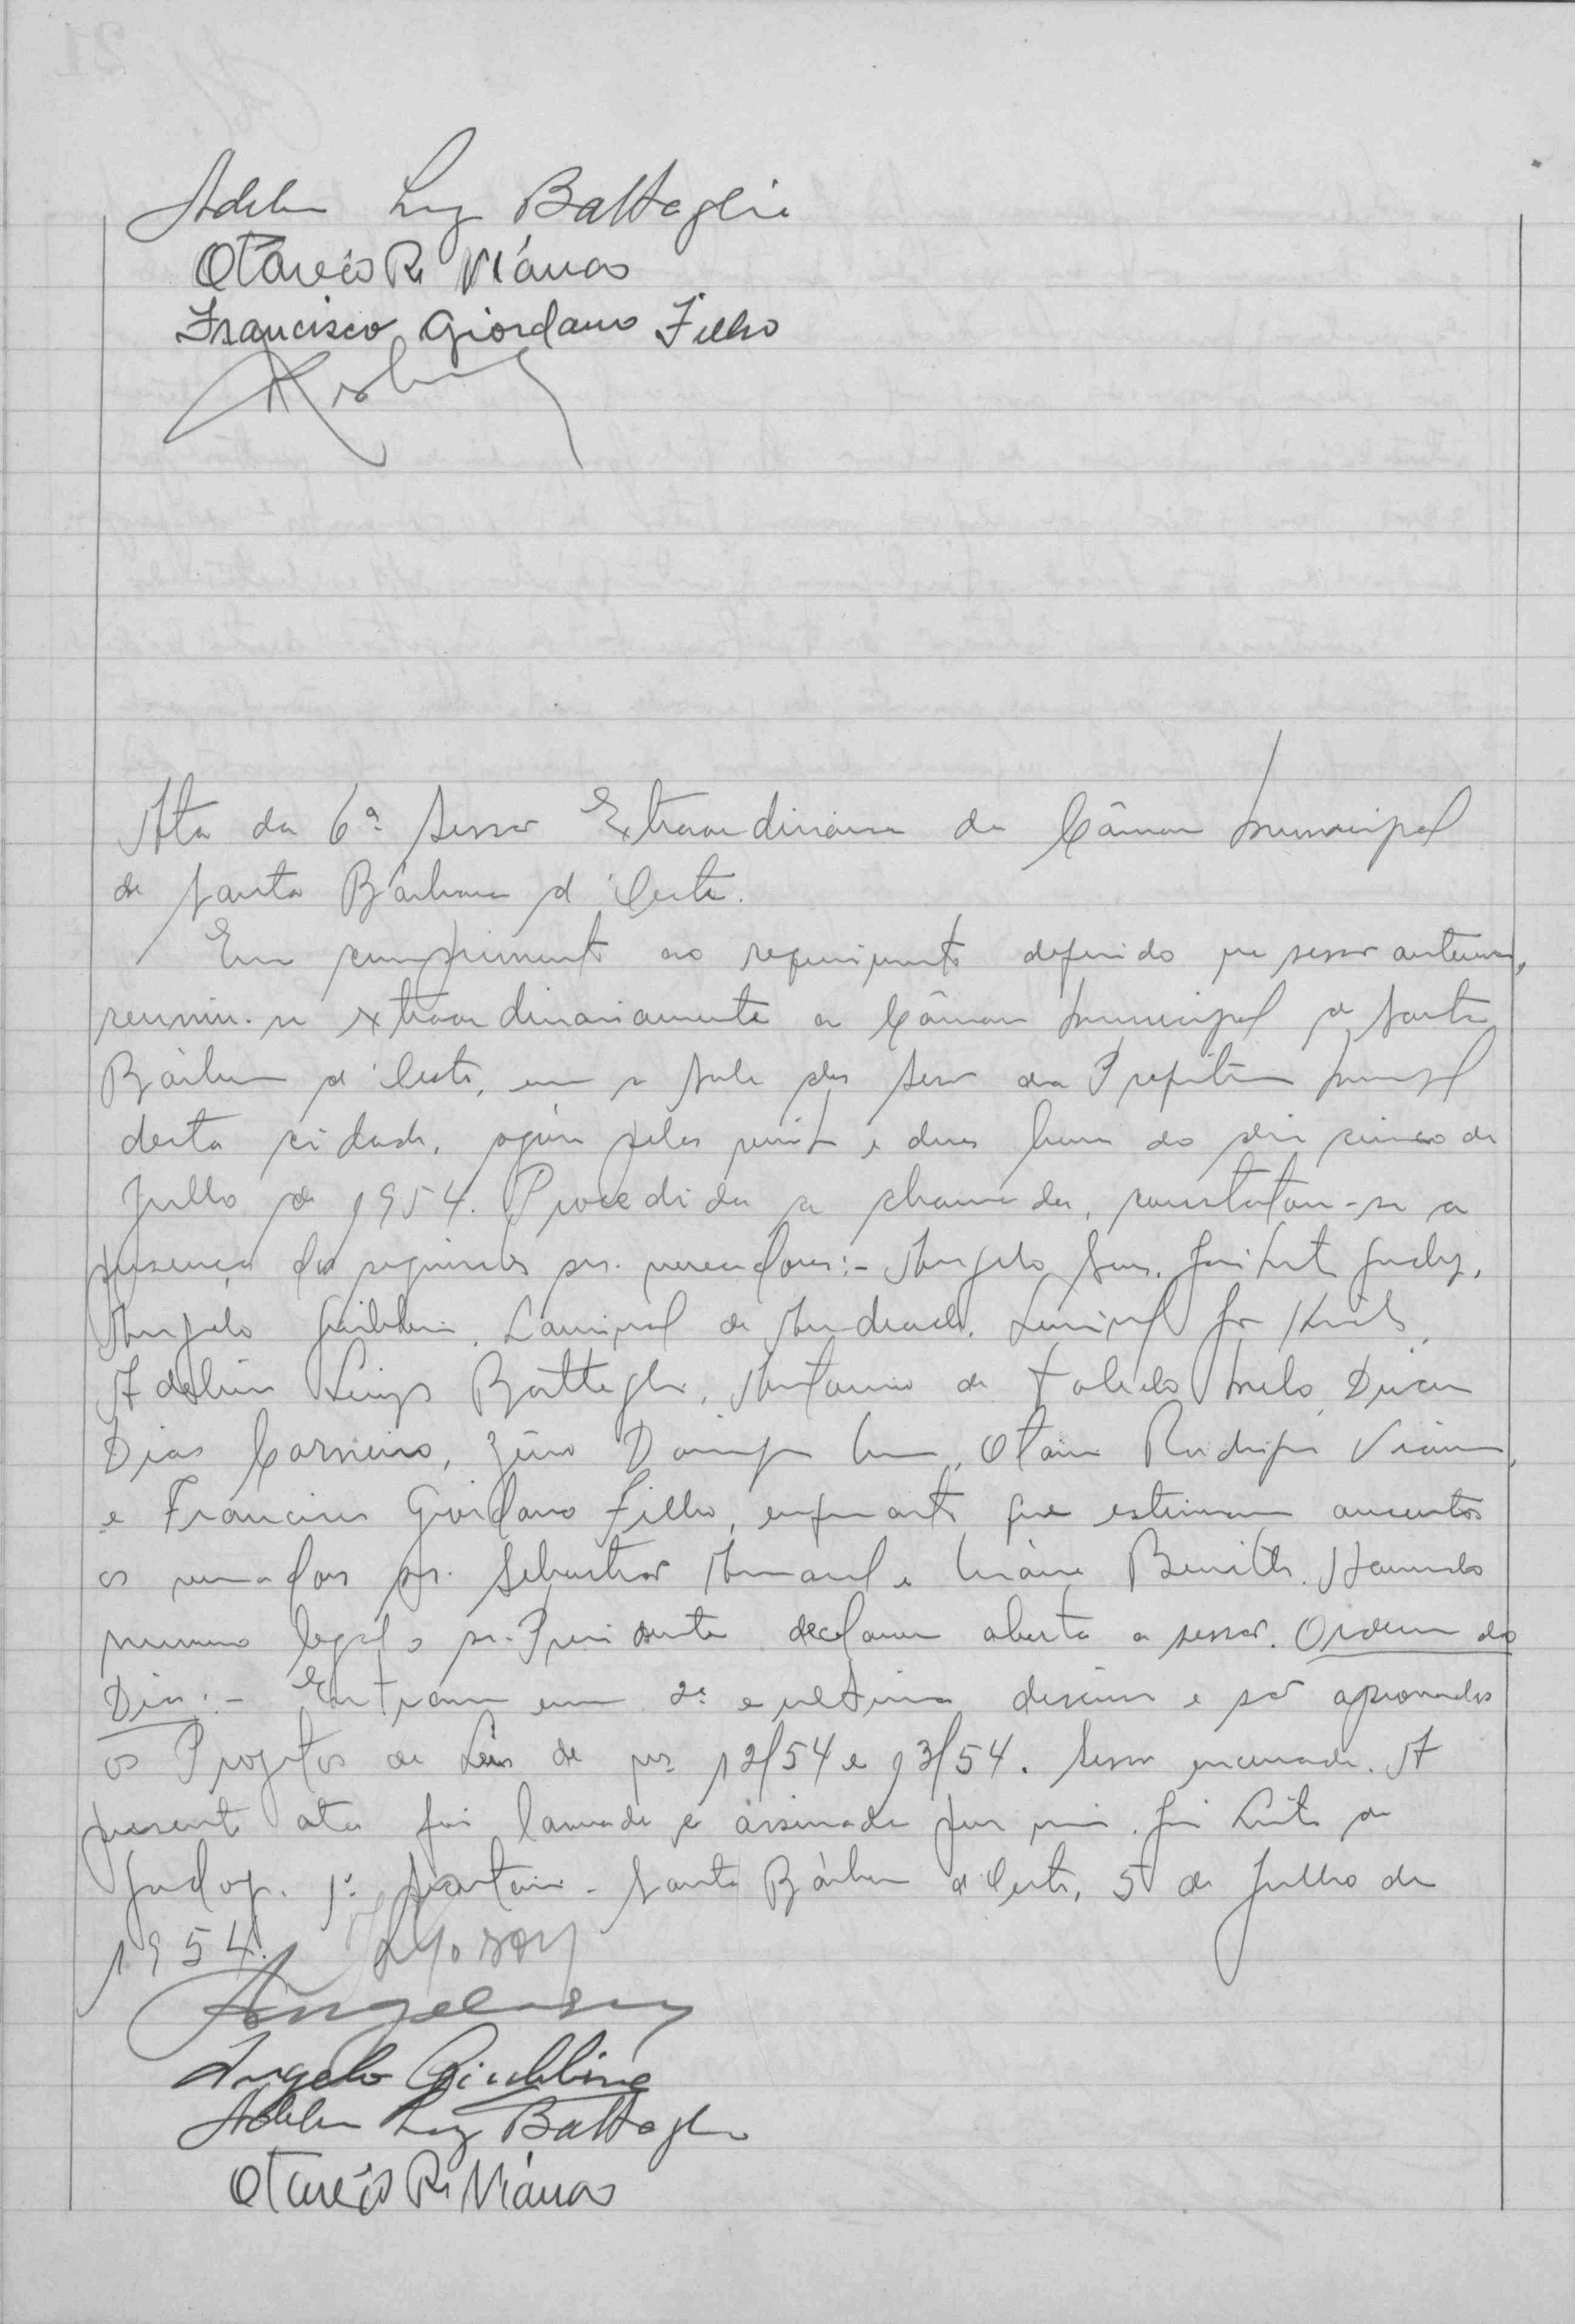 Adelino Luiz Battaglia
Otavio R. Viana
Francisco Giordano Filho
Ata da 6ª Sessão Extraordinaria da Câmara Municipal
de Santa Bárbara d'Oeste.
Em cumprimento ao requerimento deferido na sessão anterior,
reuniu-se extraordinariamente a Câmara Municipal de Santa
Bárbara d'Oeste, em a sala das sessões da Prefeitura Municipal
desta cidade, pelas vinte e duas horas do dia cinco de
Julho de 1954. Procedida a chamada, constatou-se a
presença dos seguintes srs. vereadores:- Angelo Sans,
Angelo Giubbina, Lourival de Andrade,
Adelino Luiz Battaglia, Antonio de Toledo Melo, Dirceu
Dias Carneiro, Zeno Domingos, Otavio Rodrigues Viana,
e Francisco Giordano Filho, enquanto que estiveram ausentes
os vereadores srs. Sebastião e Benith. Havendo
numero legal o sr. Presidente declarou aberta a sessão. Ordem do
Dia:- Entraram em 2ª e ultima discussão e são aprovados
os Projetos de Leis de nºs 12/54 e 13/54. Sessão encerrada. A
presente ata foi lavrada e assinada por mim.
Godoy. 1º Secretario. Santa Bárbara d'Oeste, 5 de Julho de
1954.
Angelo Sans
Angelo Giubbina
Adelino Luiz Battaglia
Otavio R. Viana